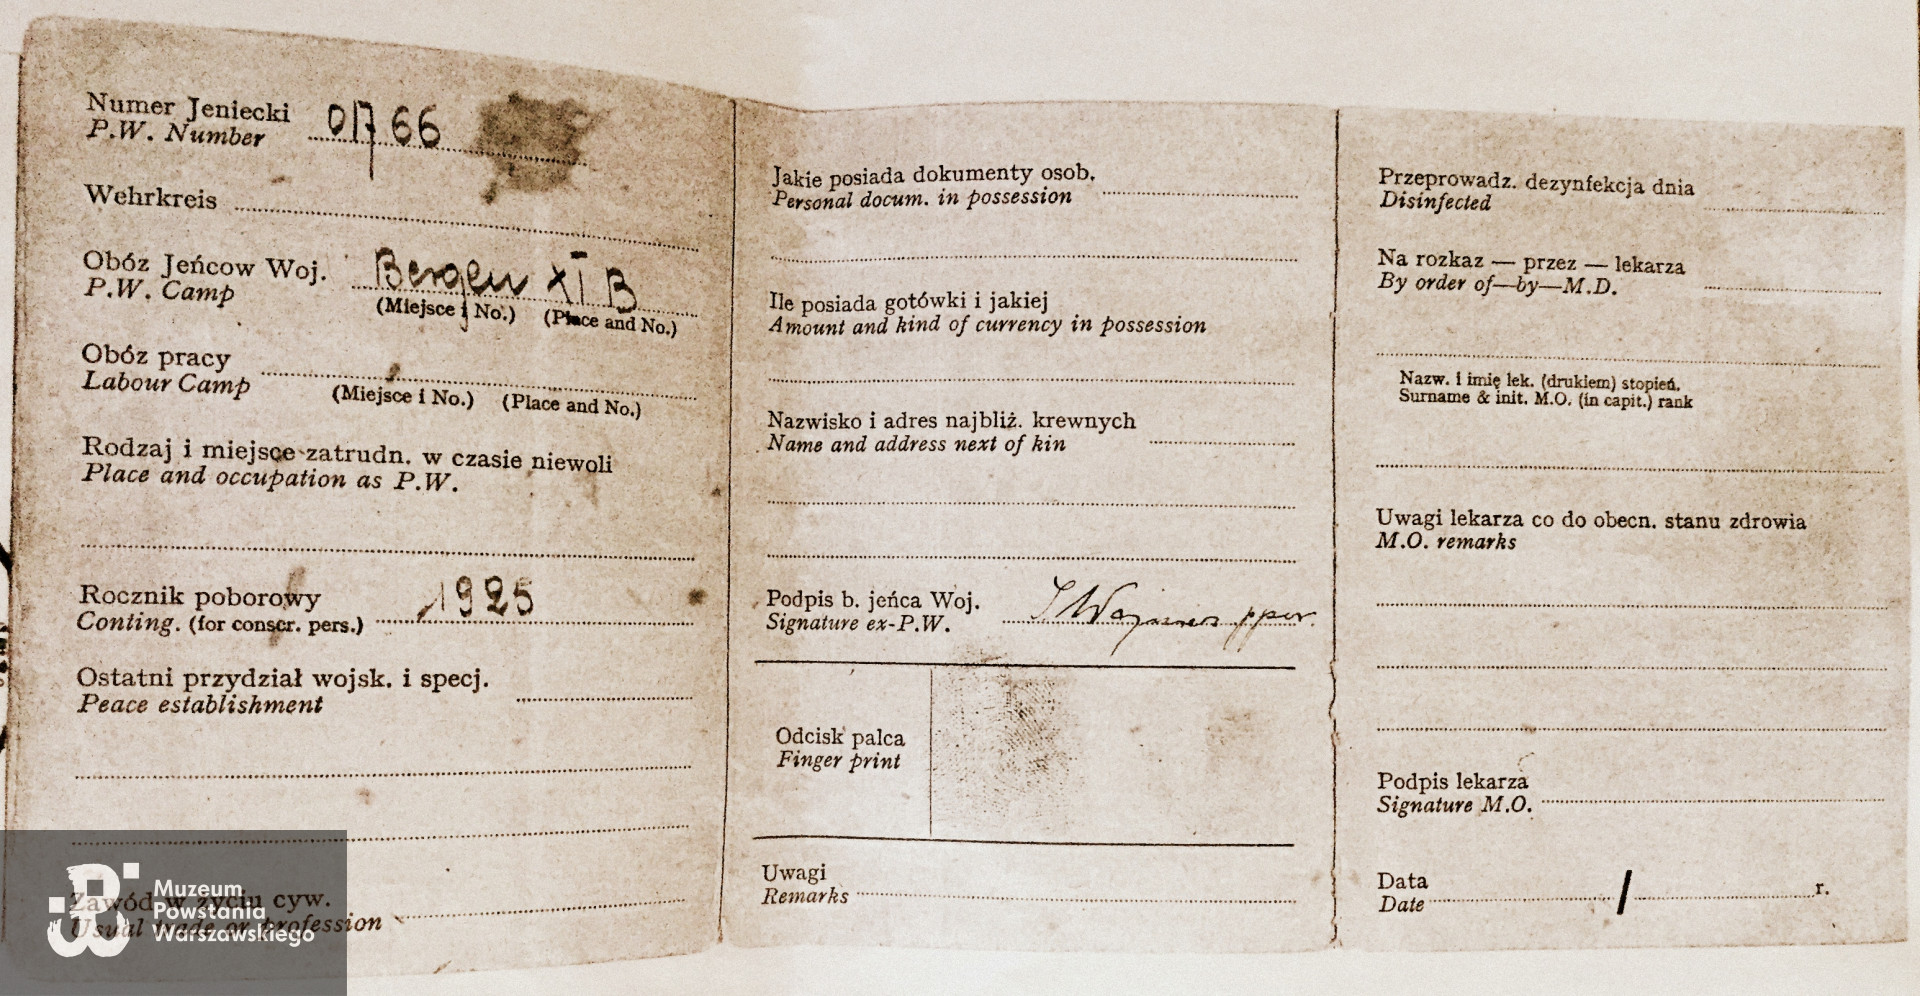 Numer Jeniecki
P.W. Number 01766
Wehrkreis
Obóz Jeńcow Woj. Bergen XI B
P.W. Camp
(Miejsce i No.) (Place and No.)
Obóz pracy
Labour Camp
(Miejsce i No.) (Place and No.)
Rodzaj i miejsce zatrudn. w czasie niewoli
Place and occupation as P.W.
Rocznik poborowy 1925
Conting. (for conscr. pers.)
Ostatni przydział wojsk. i specj.
Peace establishment
Zawód w życiu cyw.
Usual trade or profession
Muzeum
Powstania
Warszawskiego
Jakie posiada dokumenty osob.
Personal docum. in possession
Ile posiada gotówki i jakiej
Amount and kind of currency in possession
Nazwisko i adres najbliż. krewnych
Name and address next of kin
Podpis b. jeńca Woj.
Signature ex-P.W. ppor.
Odcisk palca
Finger print
Uwagi
Remarks
Przeprowadz. dezynfekcja dnia
Disinfected
Na rozkaz — przez — lekarza
By order of—by—M.D.
Nazw. i imię lek. (drukiem) stopień.
Surname & init. M.O. (in capit.) rank
Uwagi lekarza co do obecn. stanu zdrowia
M.O. remarks
Podpis lekarza
Signature M.O.
Data
Date / r.